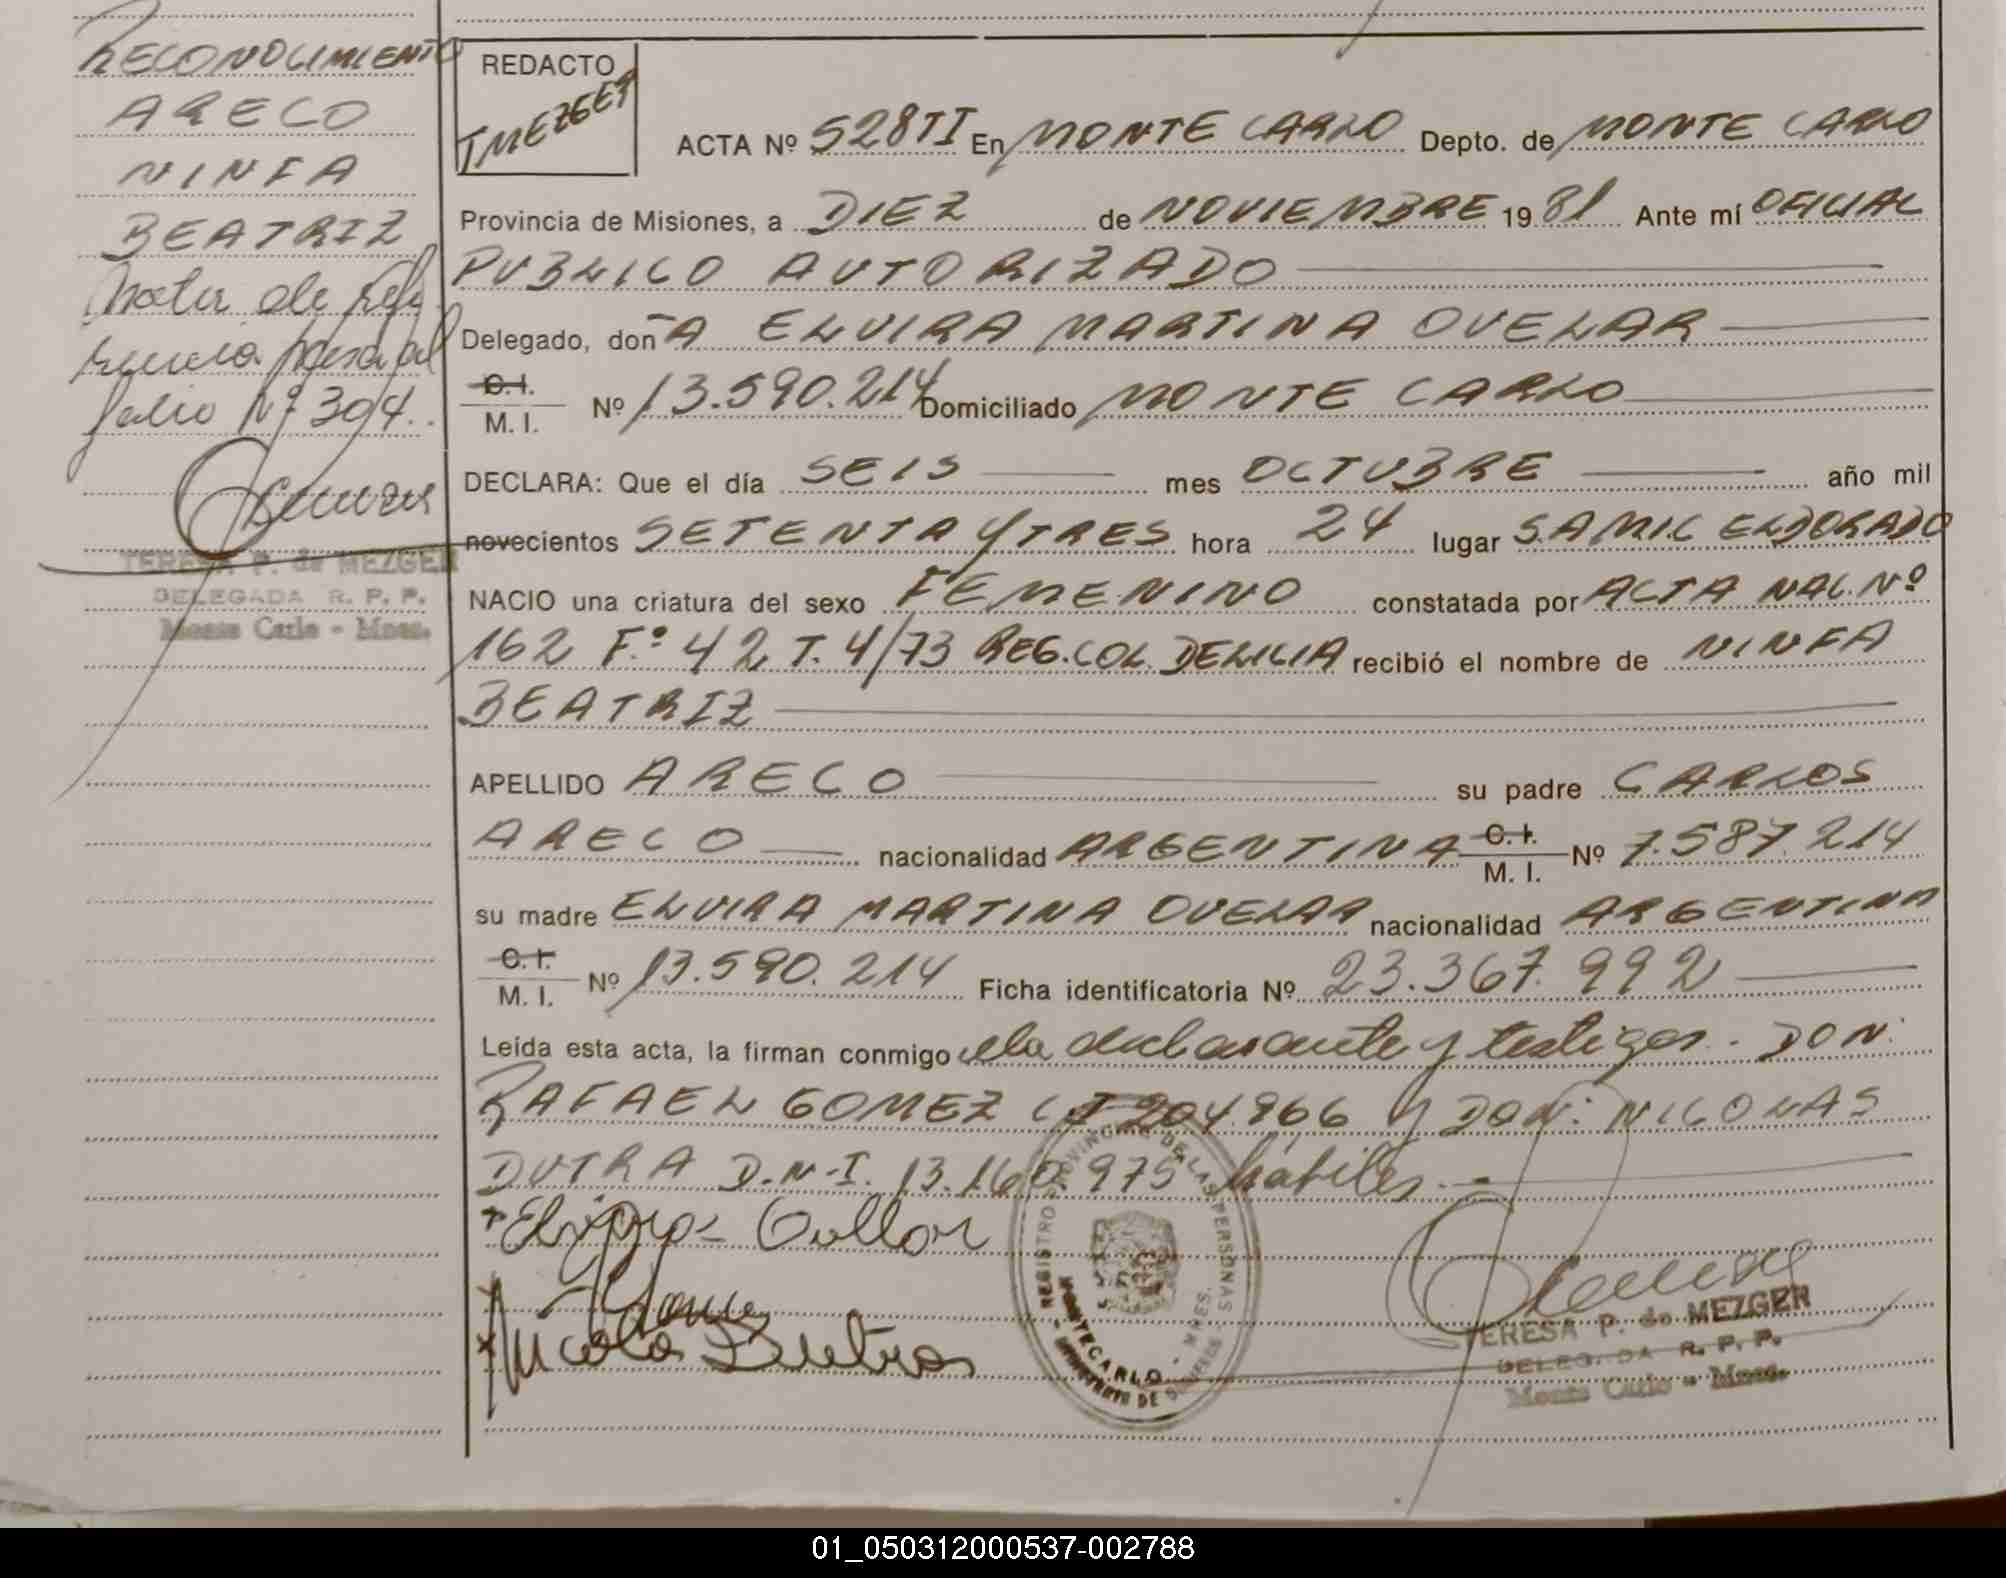 RECONOCIMIENTO
ARECO
NINFA
BEATRIZ
Nota de refe
rencia pasa al
folio Nº 304.
TERESA P. de MEZGER
DELEGADA R. P. P.
Monte Carlo - Mnes.
REDACTO
TMEZGER
ACTA Nº 528TI En MONTE CARLO Depto. de MONTE CARLO
Provincia de Misiones, a DIEZ de NOVIEMBRE 1981 Ante mí OFICIAL
PUBLICO AUTORIZADO
Delegado, doñA ELVIRA MARTINA OVELAR
C.I.
M. I. Nº 13.590.214 Domiciliado MONTE CARLO
DECLARA: Que el día SEIS mes OCTUBRE año mil
novecientos SETENTA Y TRES hora 24 lugar S.A.M.I.C ELDORADO
NACIO una criatura del sexo FEMENINO constatada por ACTA NAC. Nº
162 F.º 42 T. 4/73 REG. COL. DELICIA recibió el nombre de NINFA
BEATRIZ
APELLIDO ARECO su padre CARLOS
ARECO nacionalidad ARGENTINA C.I. M. I. Nº 7.587.214
su madre ELVIRA MARTINA OVELAR nacionalidad ARGENTINA
C.I.
M. I. Nº 13.590.214 Ficha identificatoria Nº 23.367.992
Leída esta acta, la firman conmigo la declarante y testigos. DON:
RAFAEL GOMEZ C I 204.866 y DON: NICOLAS
DUTRA D.N.I. 13.160.975 hábiles.-
REGISTRO PROVINCIAL DE LAS PERSONAS
MONTECARLO - MNES.
TERESA P. de MEZGER
DELEGADA R. P. P.
Monte Carlo - Mnes.
01_050312000537-002788